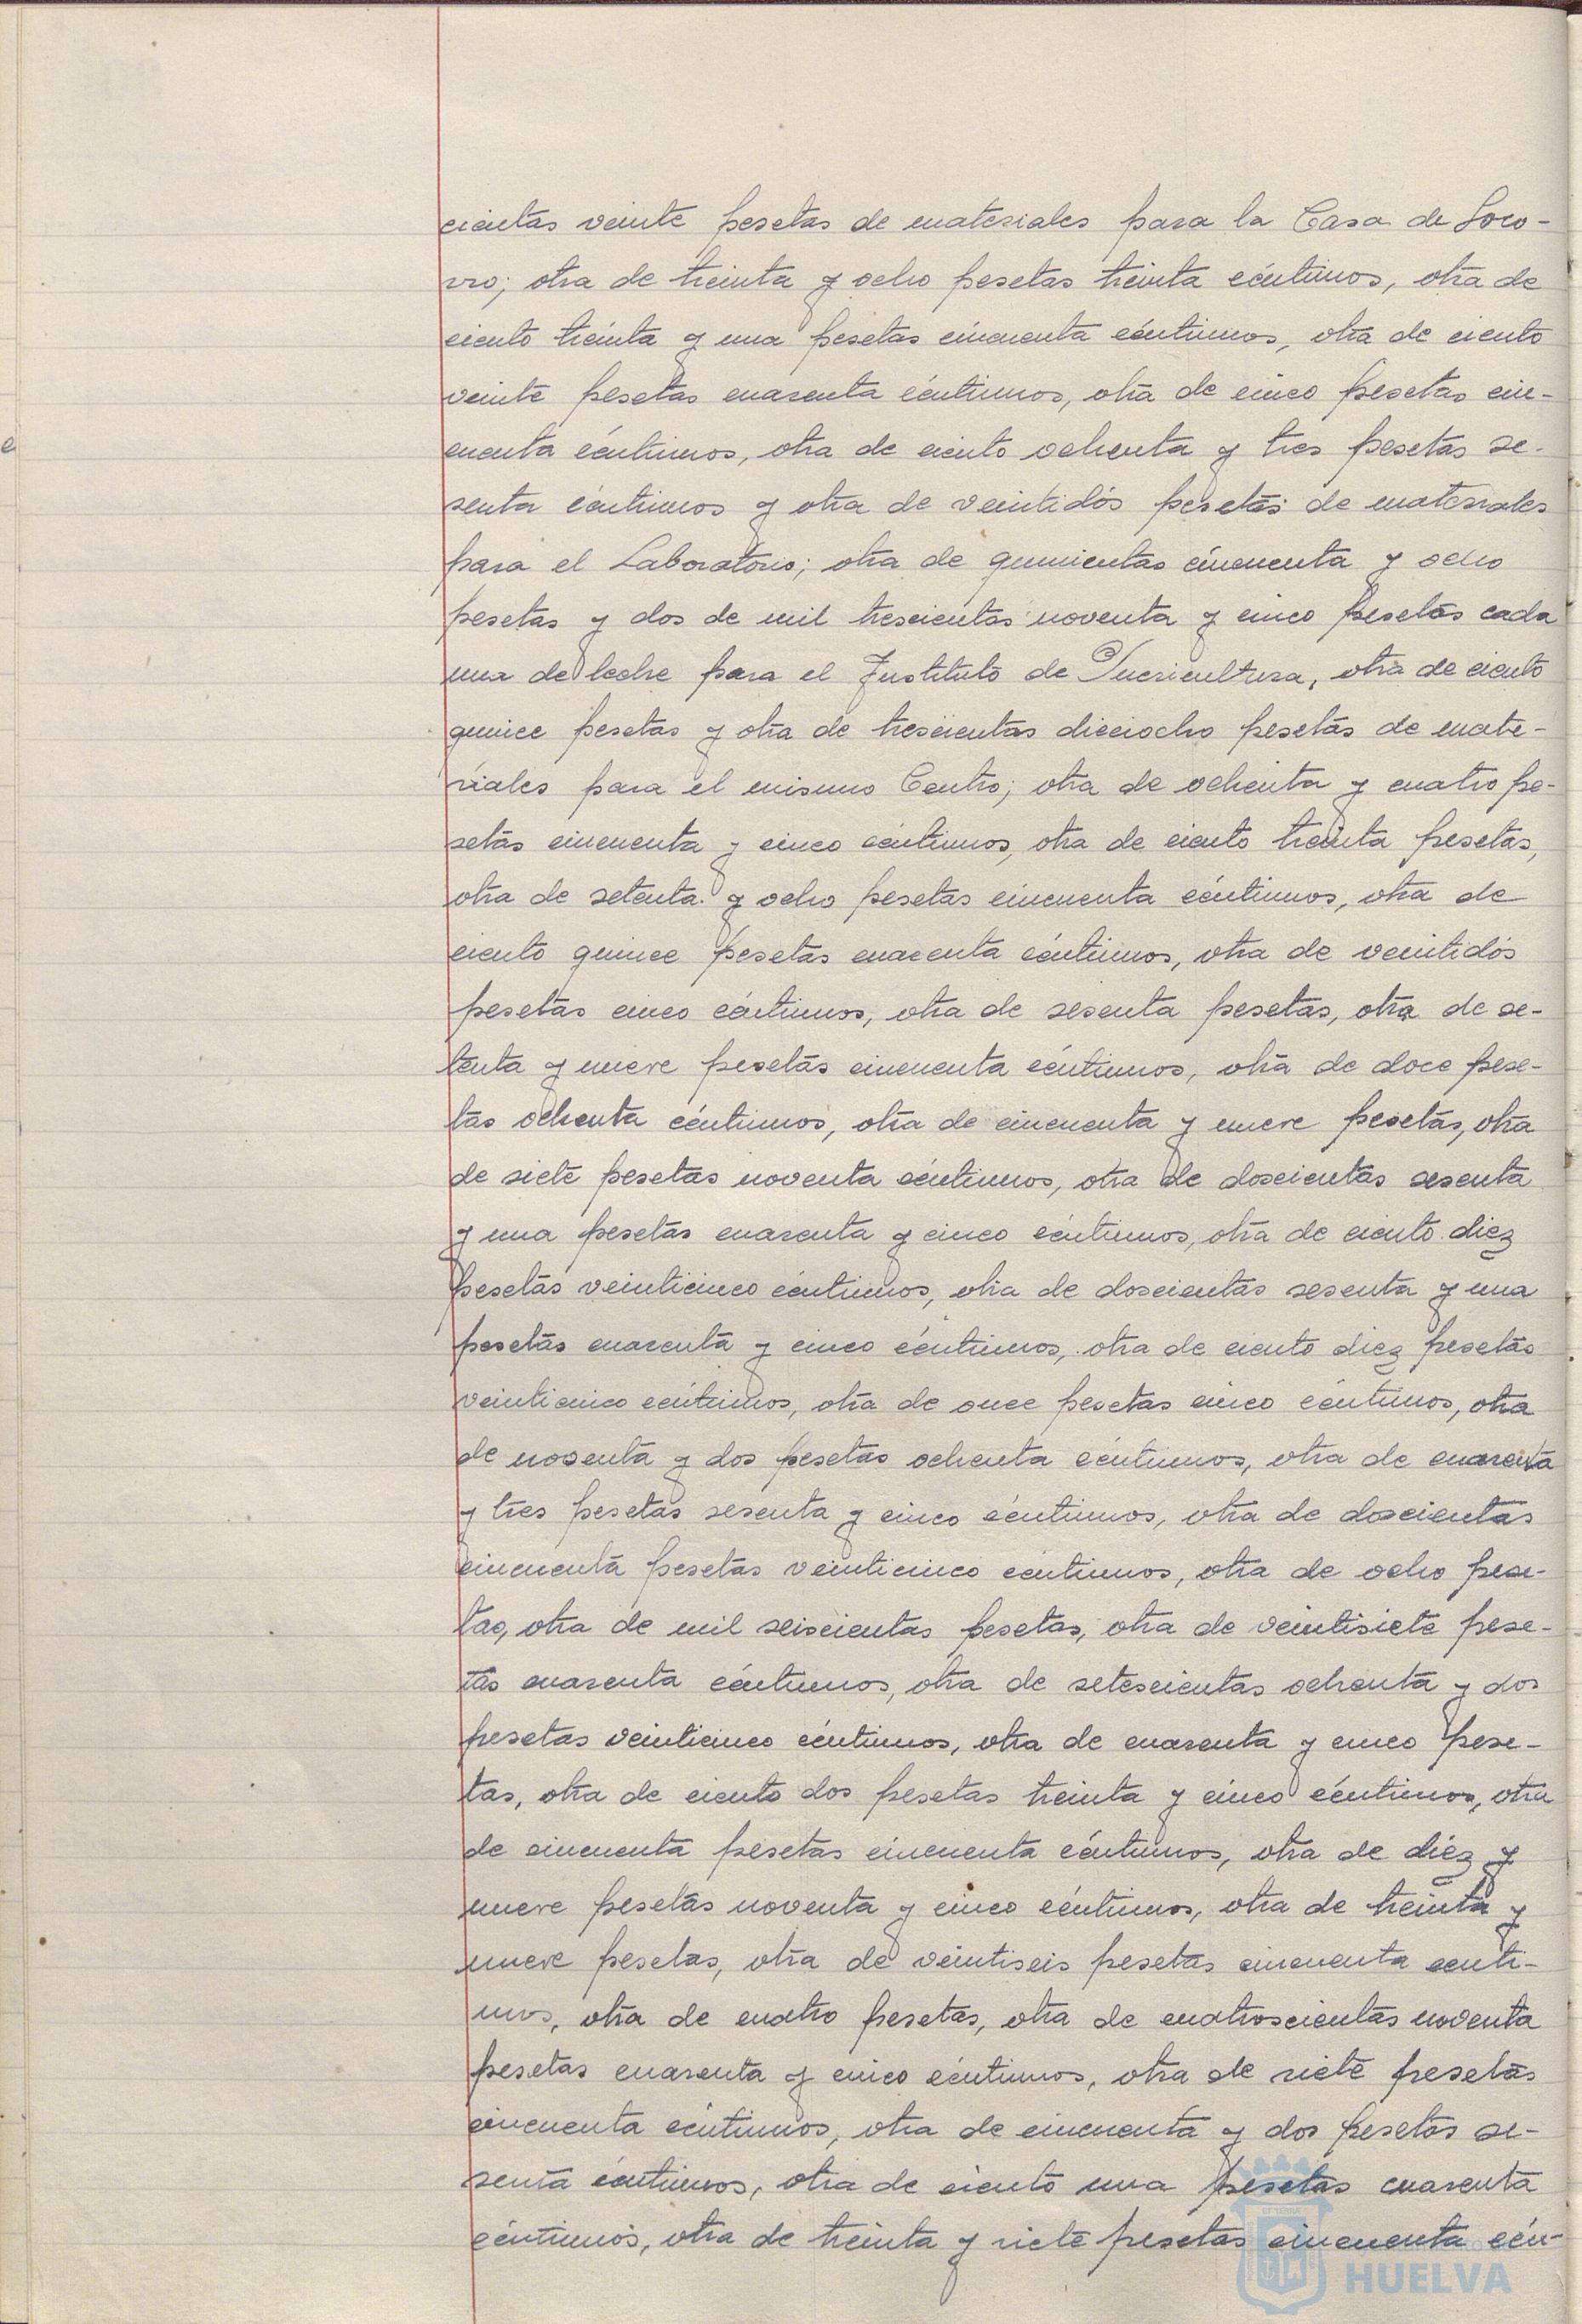 cientas veinte pesetas de materiales para la Casa de Soco-
rro; otra de treinta y ocho pesetas treinta céntimos, otra de
ciento treinta y una pesetas cincuenta céntimos, otra de ciento
veinte pesetas cuarenta céntimos, otra de cinco pesetas cin-
cuenta céntimos, otra de ciento ochenta y tres pesetas se-
senta céntimos y otra de veintidós pesetas de materiales
para el Laboratorio; otra de quinientas cincuenta y ocho
pesetas y dos de mil trescientas noventa y cinco pesetas cada
una de leche para el Instituto de Puericultura, otra de ciento
quince pesetas y otra de trescientas dieciocho pesetas de mate-
riales para el mismo Centro; otra de ochenta y cuatro pe-
setas cincuenta y cinco céntimos, otra de ciento treinta pesetas,
otra de setenta y ocho pesetas cincuenta céntimos, otra de
ciento quince pesetas cuarenta céntimos, otra de veintidós
pesetas cinco céntimos, otra de sesenta pesetas, otra de se-
tenta y nueve pesetas cincuenta céntimos, otra de doce pese-
tas ochenta céntimos, otra de cincuenta y nueve pesetas, otra
de siete pesetas noventa céntimos, otra de doscientas sesenta
y una pesetas cuarenta y cinco céntimos, otra de ciento diez
pesetas veinticinco céntimos, otra de doscientas sesenta y una
pesetas cuarenta y cinco céntimos, otra de ciento diez pesetas
veinticinco céntimos, otra de once pesetas cinco céntimos, otra
de noventa y dos pesetas ochenta céntimos, otra de cuarenta
y tres pesetas sesenta y cinco céntimos, otra de doscientas
cincuenta pesetas veinticinco céntimos, otra de ocho pese-
tas, otra de mil seiscientas pesetas, otra de veintisiete pese-
tas cuarenta céntimos, otra de setescientas ochenta y dos
pesetas veinticinco céntimos, otra de cuarenta y cinco pese-
tas, otra de ciento dos pesetas treinta y cinco céntimos, otra
de cincuenta pesetas cincuenta céntimos, otra de diez y
nueve pesetas noventa y cinco céntimos, otra de treinta y
nueve pesetas, otra de veintiseis pesetas cincuenta cénti-
mos, otra de cuatro pesetas, otra de cuatroscientas noventa
pesetas cuarenta y cinco céntimos, otra de siete pesetas
cincuenta céntimos, otra de cincuenta y dos pesetas se-
senta céntimos, otra de ciento una pesetas cuarenta
céntimos, otra de treinta y siete pesetas cincuenta cén-
HUELVA